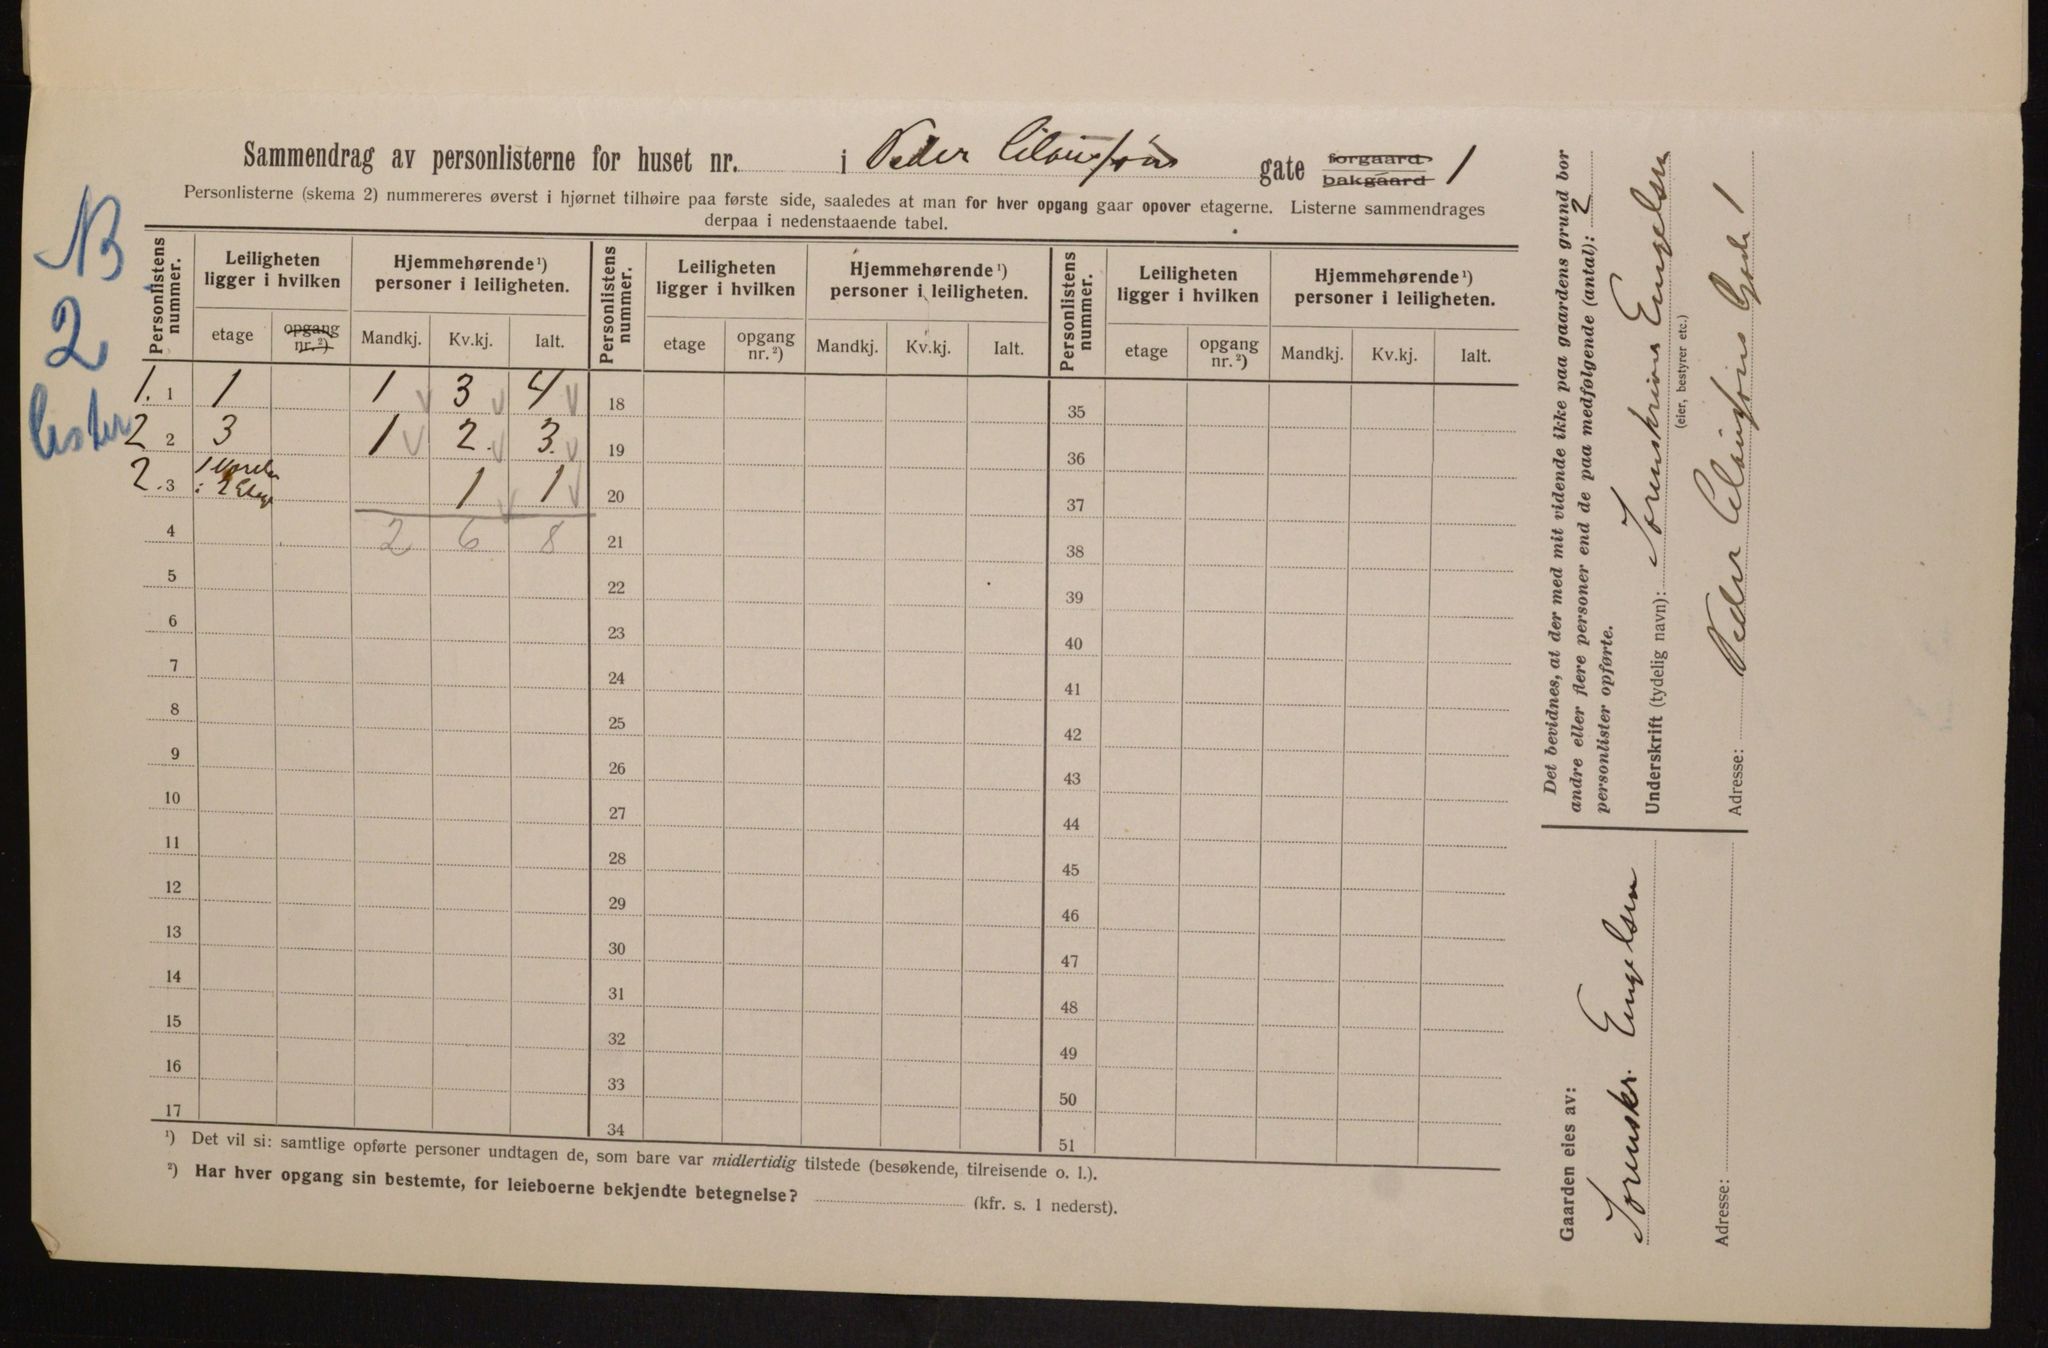 Sammendrag av personlisterne for huset nr. i Peder Clausføns gate forgaard bakgaard 1
Personlisterne (skema 2) nummereres øverst i hjørnet tilhøire paa første side, saaledes at man for hver opgang gaar opover etagerne. Listerne sammendrages
derpaa i nedenstaaende tabel.
NB
2
lister
Personlistens nummer.
Leiligheten ligger i hvilken
Hjemmehørende ¹) personer i leiligheten.
Personlistens nummer.
Leiligheten ligger i hvilken
Hjemmehørende ¹) personer i leiligheten.
Personlistens nummer.
Leiligheten ligger i hvilken
Hjemmehørende ¹) personer i leiligheten.
etage opgang nr. ²) Mandkj. Kv.kj. Ialt. etage opgang nr. ²) Mandkj. Kv.kj. Ialt. etage opgang nr. ²) Mandkj. Kv.kj. Ialt.
1. 1 1 1 3 4 18 35
2 2 3 1 2. 3. 19 36
2. 3 1 i 2 Etage 1 1 20 37
4 2 6 8 21 38
5 22 39
6 23 40
7 24 41
8 25 42
9 26 43
10 27 44
11 28 45
12 29 46
13 30 47
14 31 48
15 32 49
16 33 50
17 34 51
¹) Det vil si: samtlige opførte personer undtagen de, som bare var midlertidig tilstede (besøkende, tilreisende o. l.).
²) Har hver opgang sin bestemte, for leieboerne bekjendte betegnelse? (kfr. s. 1 nederst).
Det bevidnes, at der med mit vidende ikke paa gaardens grund bor
andre eller flere personer end de paa medfølgende (antal): 2
personlister opførte.
Underskrift (tydelig navn): Sorenskriver Engelsen
(eier, bestyrer etc.)
Adresse: Peder Clausføns Gade 1
Gaarden eies av:
Sorenskr. Engelsen
Adresse: